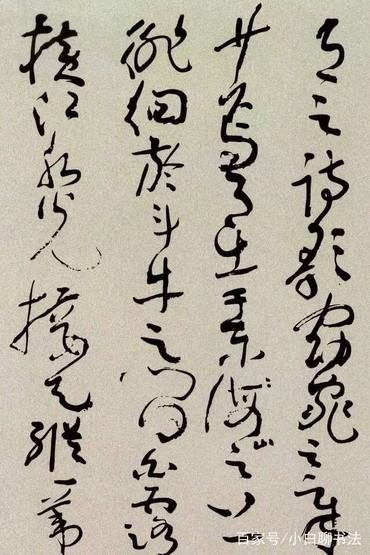 明月之詩歌窈窕之章
少焉月出於東之上
徘徊於斗牛之間白露
橫江水光接天縱一葦
百家号/小白聊书法